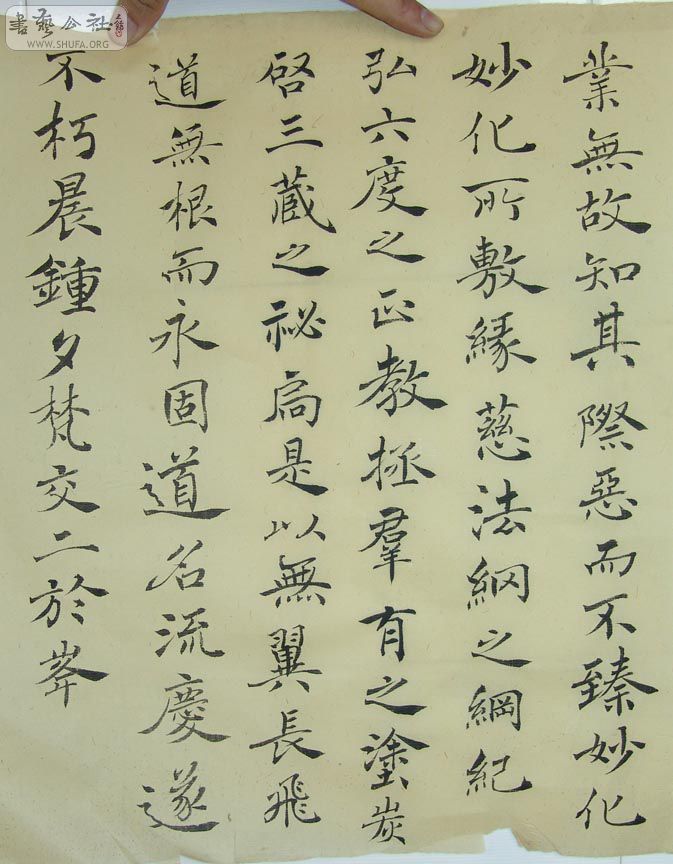 書藝公社
WWW.SHUFA.ORG
業無故知其際惡而不臻妙化
妙化所敷緣慈法網之綱紀
弘六度之正教拯羣有之塗炭
啓三藏之祕扃是以無翼長飛
道無根而永固道名流慶遂
不朽晨鍾夕梵交二於峯